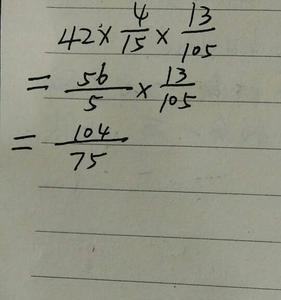 42 × 4/15 × 13/105
= 56/5 × 13/105
= 104/75